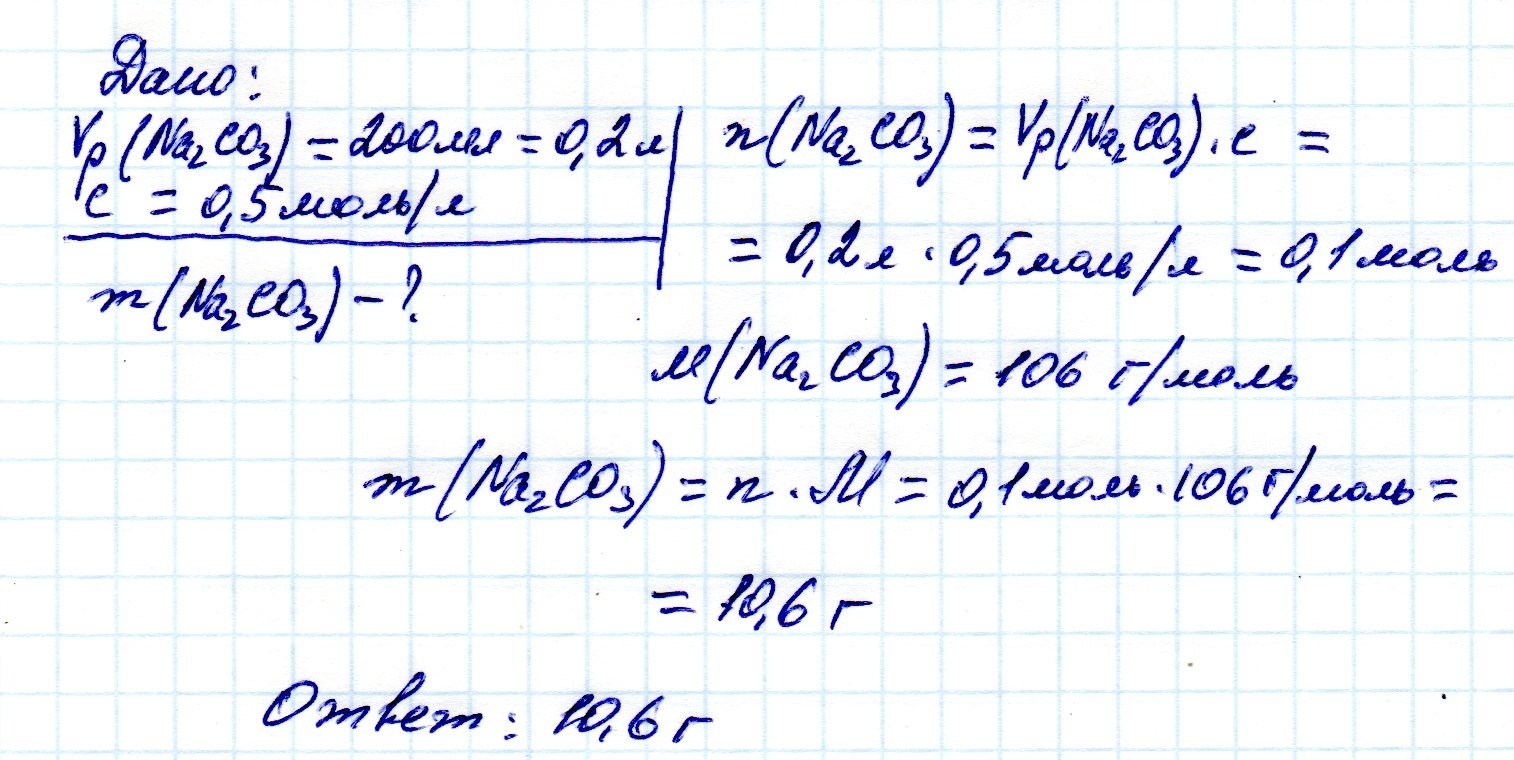 Дано:
Vр(Na₂CO₃) = 200мл = 0,2л
c = 0,5моль/л
m(Na₂CO₃) – ?
n(Na₂CO₃) = Vр(Na₂CO₃) · c =
= 0,2л · 0,5моль/л = 0,1моль
M(Na₂CO₃) = 106 г/моль
m(Na₂CO₃) = n · M = 0,1моль · 106г/моль =
= 10,6 г
Ответ: 10,6г